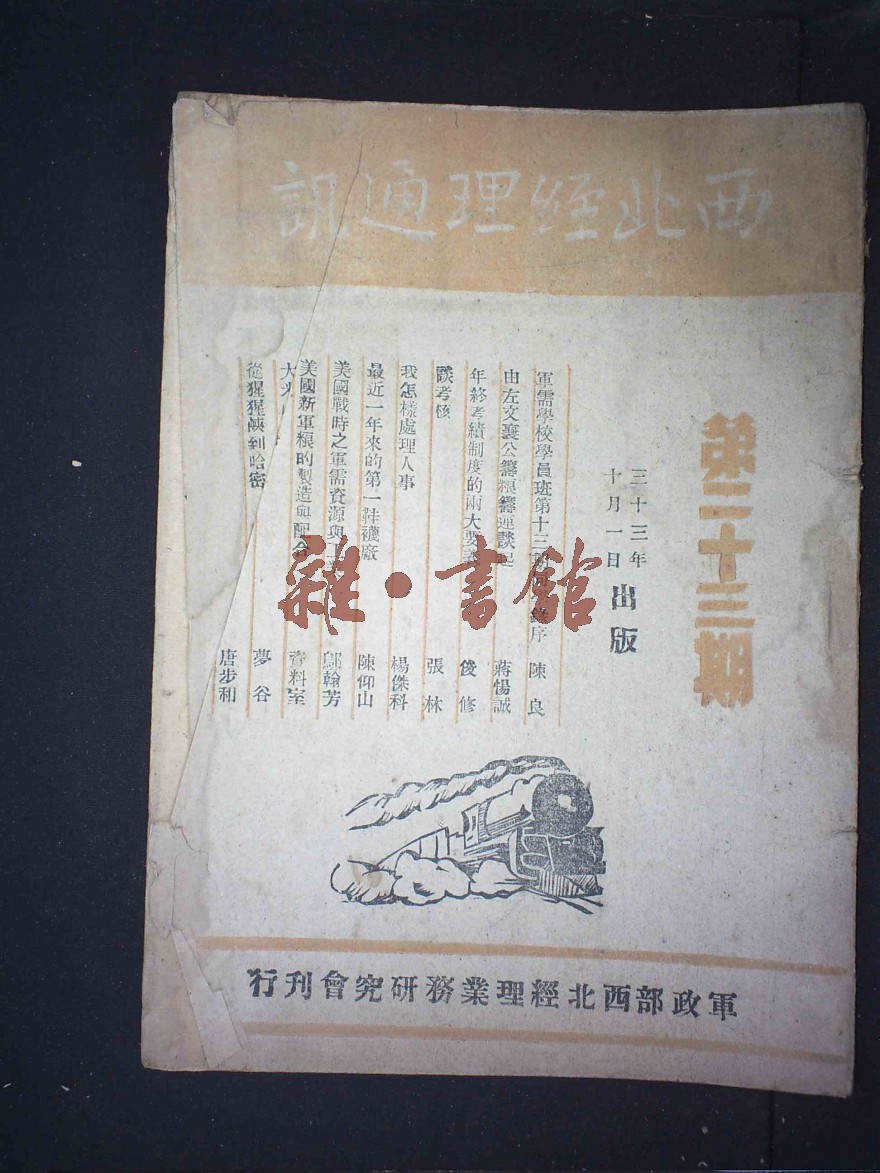 西北經理通訊
第二十三期
三十三年
十月一日
出版
軍需學校學員班第十三期同學錄序 陳良
由左文襄公籌糧籌運談起 蔣惕誠
年終考績制度的兩大要 俊修
談考核 張林
我怎樣處理人事 楊傑科
最近一年來的第一鞋襪廠 陳仰山
美國戰時之軍需資源與工業 鄺翰芳
美國新軍糧的製造與配合 資料室
大 夢谷
從猩猩峽到哈密 唐步和
雜·書館
軍政部西北經理業務研究會刊行